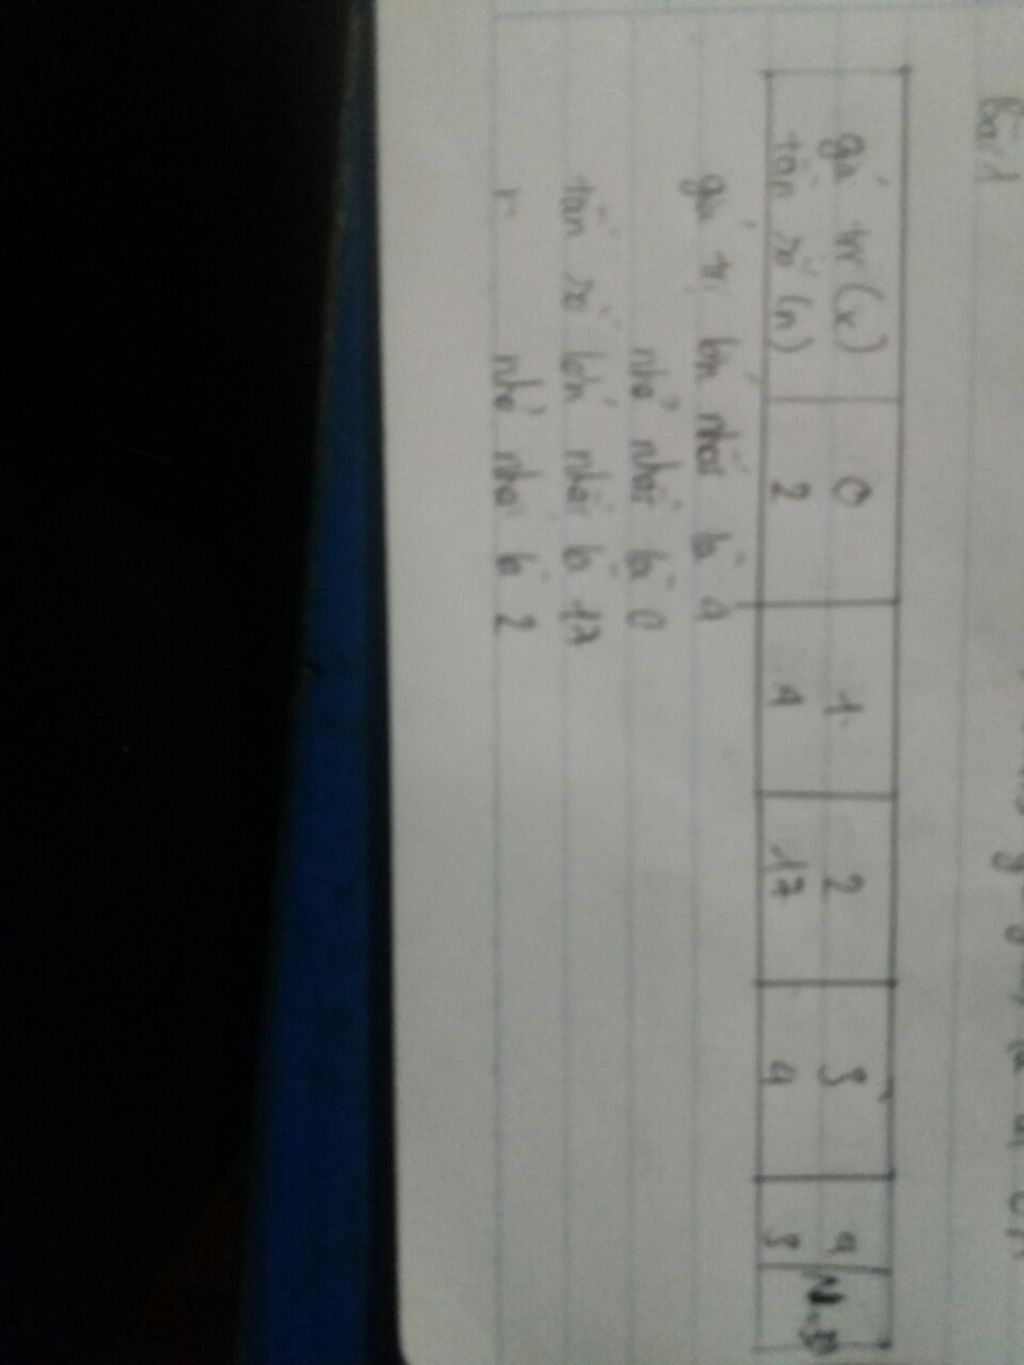 Bài 1
giá trị (x) 0 1 2 3 4
tần số (n) 2 4 17 4 3
giá trị lớn nhất là 4
nhỏ nhất là 0
tần số lớn nhất là 17
nhỏ nhất là 2